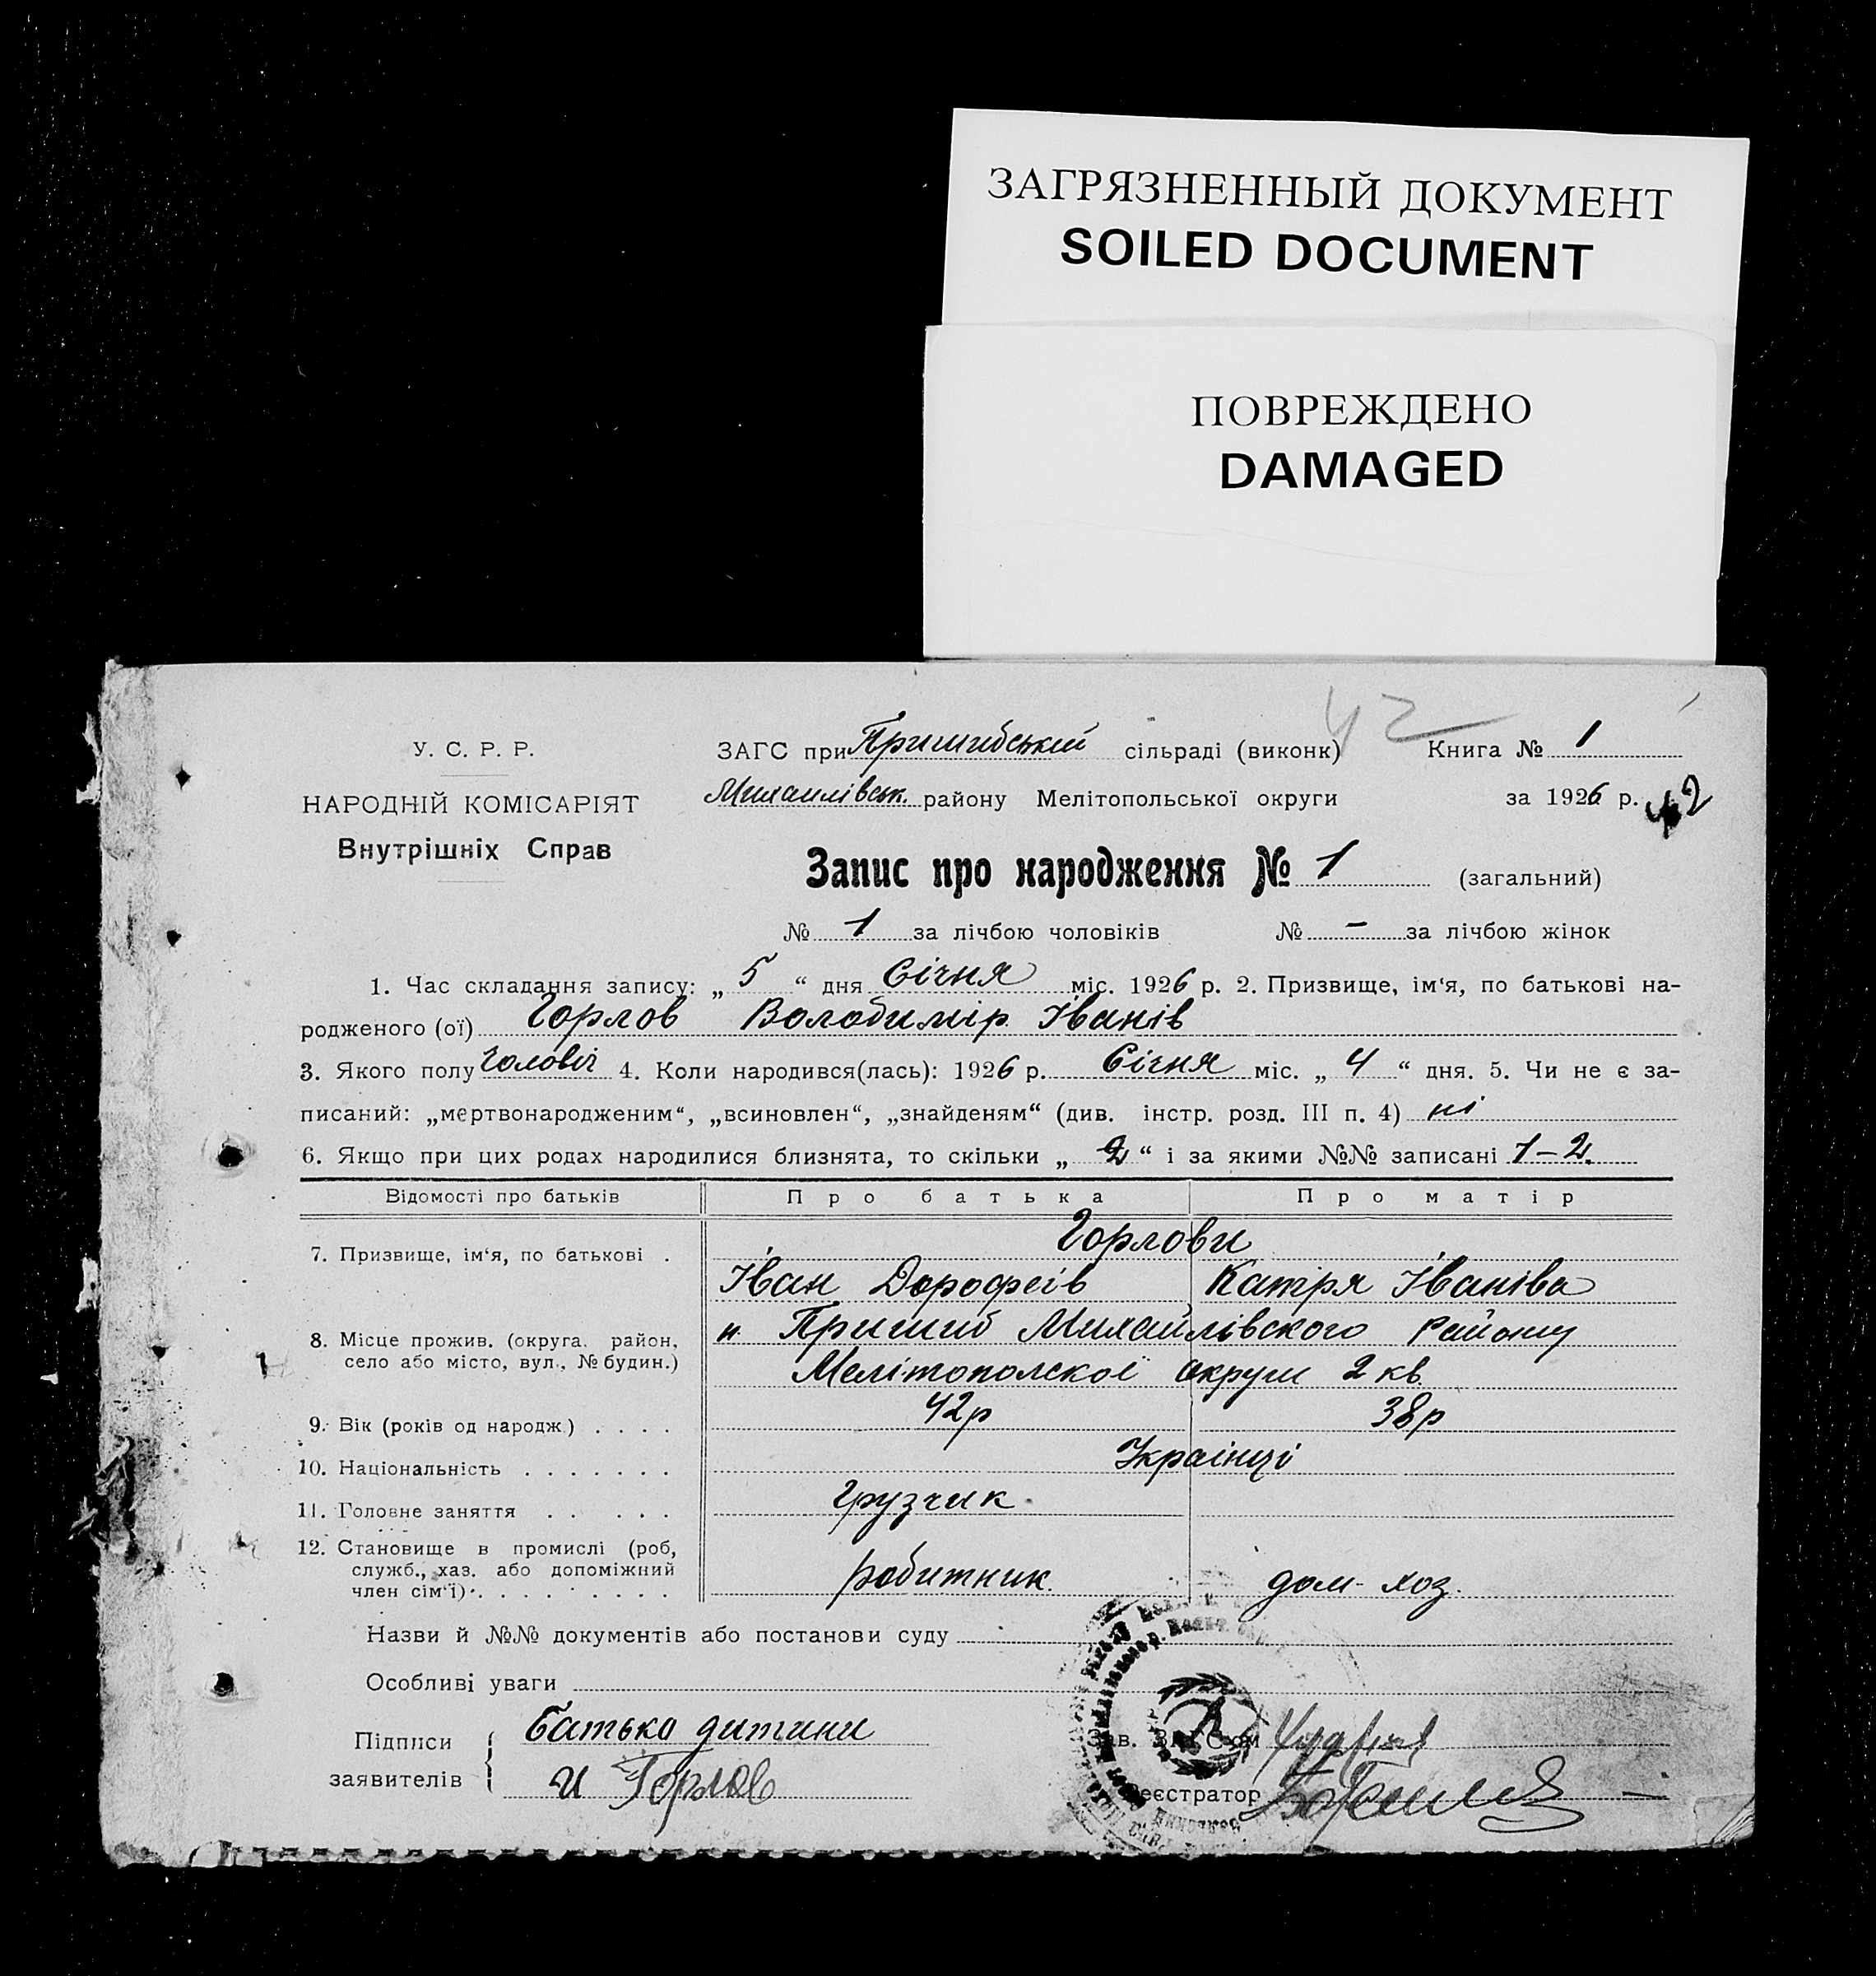 ЗАГРЯЗНЕННЫЙ ДОКУМЕНТ
SOILED DOCUMENT
ПОВРЕЖДЕНО
DAMAGED
42
У. С. Р. Р.
НАРОДНІЙ КОМІСАРІЯТ
Внутрішніх Справ
ЗАГС при Пришибській сільраді (виконк) Книга № 1
Михайлівськ. району Мелітопольської округи за 1926 р. 42
Запис про народження № 1 (загальний)
№ 1 за лічбою чоловіків № – за лічбою жінок
1. Час складання запису: „ 5 “ дня Січня міс. 1926 р. 2. Призвище, ім‘я, по батькові на-
родженого (ої) Горлов Володимір Іванів
3. Якого полу Чоловіч 4. Коли народився(лась): 1926 р. Січня міс. „ 4 “ дня. 5. Чи не є за-
писаний: „мертвонародженим“, „всиновлен“, „знайденям“ (див. інстр. розд. III п. 4) ні
6. Якщо при цих родах народилися близнята, то скільки „ 2 “ і за якими №№ записані 1–2.
Відомості про батьків Про батька Про матір
7. Призвище, ім‘я, по батькові . Горлови
Іван Дорофеів Катря Іванівa
8. Місце прожив. (округа, район, село або місто, вул., № будин.) н Пришиб Михайлівского Району
Мелітополскоі округи 2 кв.
9. Вік (років од народж.) . . . . 42р 38р
10. Національність . . . . . . . Украінці
11. Головне заняття . . . . . грузчик.
12. Становище в промислі (роб,
служб., хаз. або допоміжний
член сім‘ї) . . . . . . . . робитник. дом-хоз.
Назви й №№ документів або постанови суду
Особливі уваги
Підписи заявителів
Батько дитини
И Горлов
Зав. ЗАГСом
Реєстратор